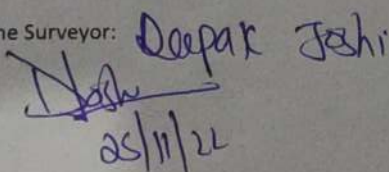 ne Surveyor: Deepak Joshi
25/11/22